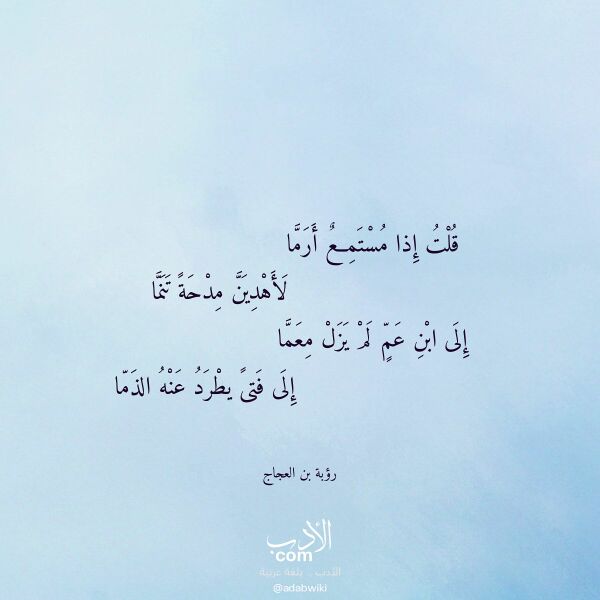 قُلْتُ إِذا مُسْتَمِعٌ أَرَمَّا
لَأَهْدِيَنَّ مِدْحَةً تَنَمَّا
إِلَى ابْنِ عَمٍّ لَمْ يَزَلْ مِعَمَّا
إِلَى فَتىً يطْرَدُ عَنْهُ الذَمّا
رؤبة بن العجاج
الأدب
com
الأدب .. بلغة عربية
@adabwiki